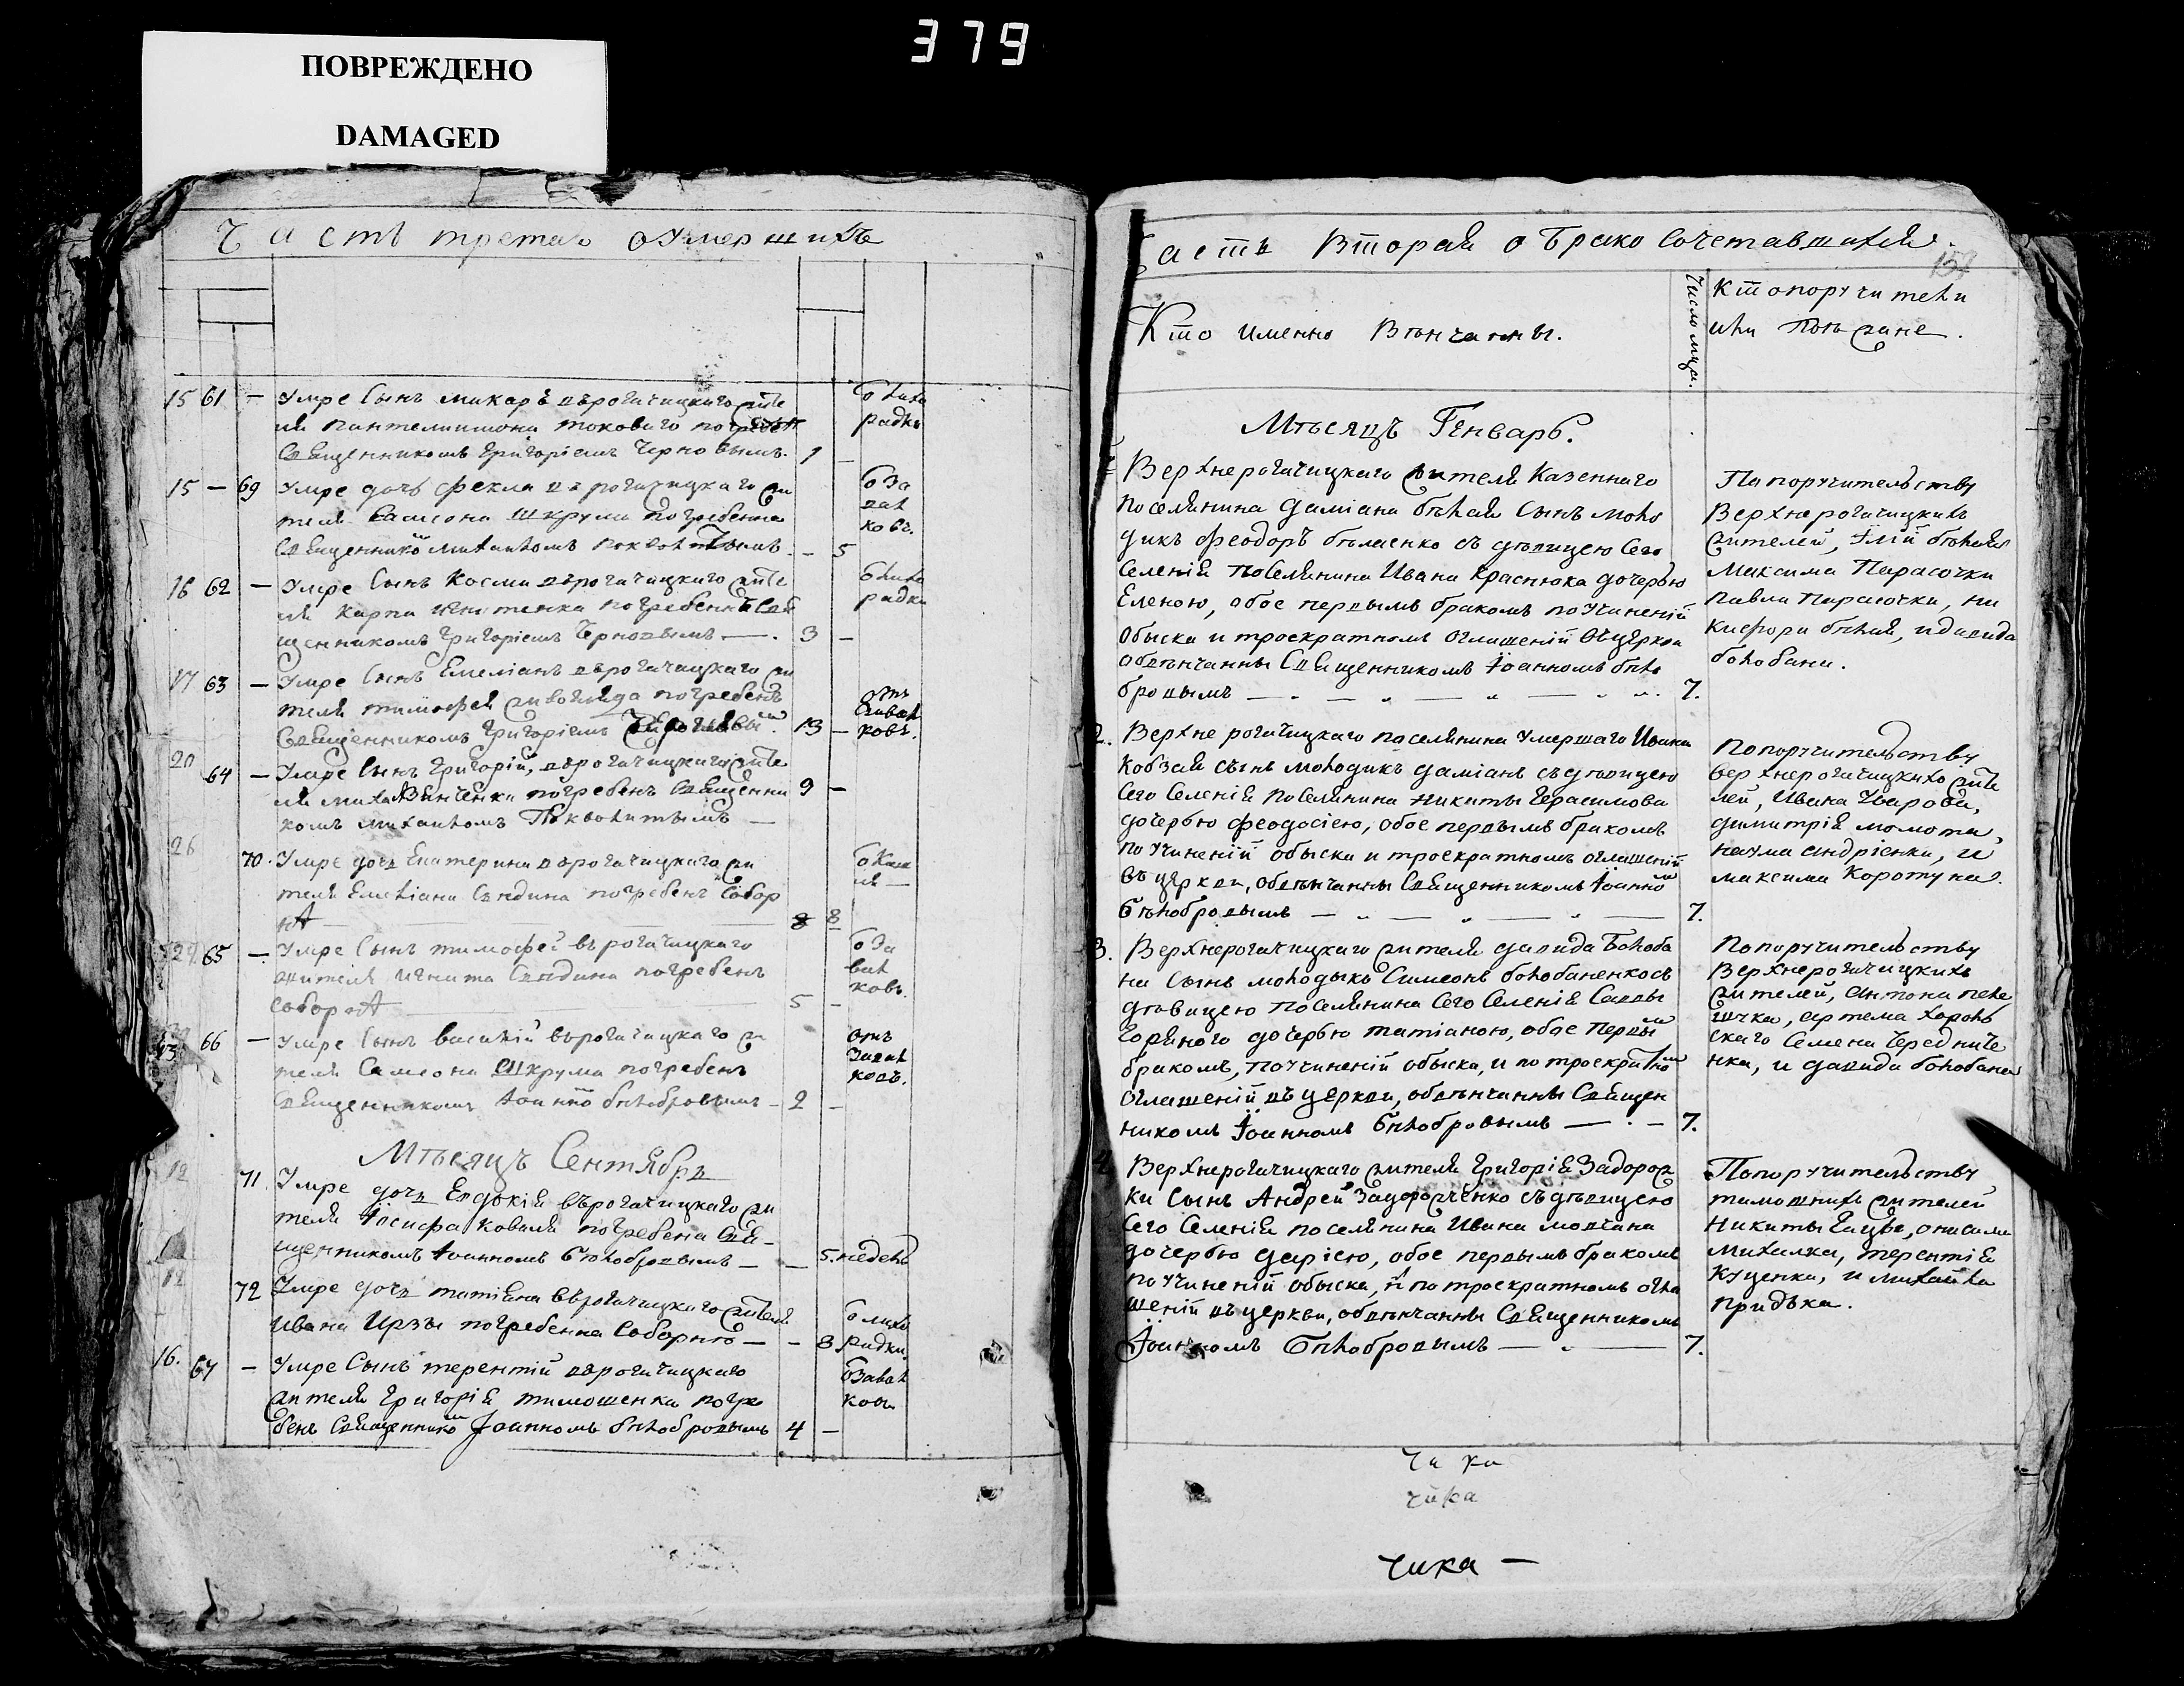 379
ПОВРЕЖДЕНО
DAMAGED
Часть третая о умершихъ
15 61 — Умре сынъ Макаръ вѣрогачицкаго жите
ля Пантелиимона Токоваго погребен
священникомъ Григоріемъ Черновымъ. 1 —
о Лихо
радки
15 — 69 Умре дочь Фекла вѣрогачицкаго жи
теля Самсона Шкрума погребенна
священникомъ Михаиломъ — 5
о За
вал
ковъ.
16 62 — Умре сынъ Косма вѣрогачицкаго жите
ля Карпа погребенъ свя
щенникомъ Григоріемъ Черновымъ — 3 —
о Лихо
радки
17 63 — Умре сынъ Емеліанъ вѣрогачицкаго жи
теля Тимофея погребенъ
священникомъ Григоріемъ 13 —
отъ
Завал
ковъ.
20 64 — Умре сынъ Григорій, вѣрогачицкаго жите
ля Миха Винченка погребенъ священни 9 —
комъ Михаиломъ
26 70. Умре дочь Екатерина вѣрогачицкаго жи
теля Емеліана Сѣндина погребенъ собор
нѣ — 8
о Каш
ля —
29 65 — Умре сынъ Тимофей вѣрогачицкаго
жителя Игната Сѣндина погребенъ
соборнѣ — 5 —
о За
вал
ковъ.
66 — Умре сынъ Василій вѣрогачицкаго жи
теля Самсона Шкрума погребенъ
священникомъ Іоанномъ Бѣлобровымъ — 2 —
отъ
Завал
ковъ.
Мѣсяцъ Сентябрь
12 71 Умре дочь Евдокія вѣрогачицкаго жи
теля Іосифа Коваля погребена свя-
щенникомъ Іоанномъ Бѣлобровымъ — — 5. недель
12 72 Умре дочь Татіана вѣрогачицкаго жителя
Ивана Ирзы погребенна соборнѣ — — 8
о Лихо
радки.
16. 67 — Умре сынъ Терентій вѣрогачицкаго
жителя Григорія Тимошенка погре
бенъ священникомъ Іоанномъ Бѣлобровымъ 4 —
о Завал
ковъ
Часть Вторая о Бракосочетавшихся.
157
Кто именно Вѣнчанны.
Число мца.
Кто поручители
или поѣзжане.
Мѣсяцъ Генварь.
Верхнерогачицкаго жителя Казеннаго
поселянина Даміана Бѣлая сынъ моло
дикъ Феодоръ Бѣлаенко съ дѣвицею сего
селенія поселянина Ивана Краснюка дочерью
Еленою, обое первымъ бракомъ по учиненій
обыска и троекратномъ оглашеній въ церкви
обвѣнчанны священникомъ Іоанномъ Бѣло
бровымъ — 7.
По поручительству
Верхнерогачицкихъ
жителей, Іліи Бѣлая
Максима Парасочки
Павла Парасочки, Ни
кифора Бѣлая, и Давида
Болобана.
2. Верхнерогачицкаго поселянина умершаго Ивана
Кобзая сынъ молодикъ Даміанъ съ дѣвицею
сего селенія поселянина Никиты Герасимова
дочерью Феодосіею, обое первымъ бракомъ
по учиненій обыска и троекратномъ оглашеній
въ церкви, обвѣнчанны священникомъ Іоанномъ
Бѣлобровымъ — 7.
По поручительству
верхнерогачицкихъ жите
лей, Ивана Увароба,
Димитрія Момота,
Наума Андріенка, и
Максима Коротуна.
3. Верхнерогачицкаго жителя Давида Болоба
на сынъ молодыкъ Симеонъ Болобаненко съ
дѣвицею поселянина сего селенія Саввы
Горяного дочерью Татіаною, обое первымъ
бракомъ, по учиненій обыска, и по троекратномъ
оглашеній въ церкви, обвѣнчанны священ
никомъ Іоанномъ Бѣлобровымъ — 7.
По поручительству
Верхнерогачицкихъ
жителей, Антона
Артема Хороль
скаго Семена Чередниче
нка, и Давида Болобана
4 Верхнерогачицкаго жителя Григорія Задорож
ки сынъ Андрей Задорожченко съ дѣвицею
сего селенія поселянина Ивана Мовчана
дочерью Даріею, обое первымъ бракомъ
по учиненій обыска, и по троекратномъ огла
шеній въ церкви, обвѣнчанны священникомъ
Іоанномъ Бѣлобровымъ — 7.
По поручительству
тимошнихъ жителей
Никиты
Михалка, Терентія
Куценка, и Михайла
Придъка.
чика
чика
чика —